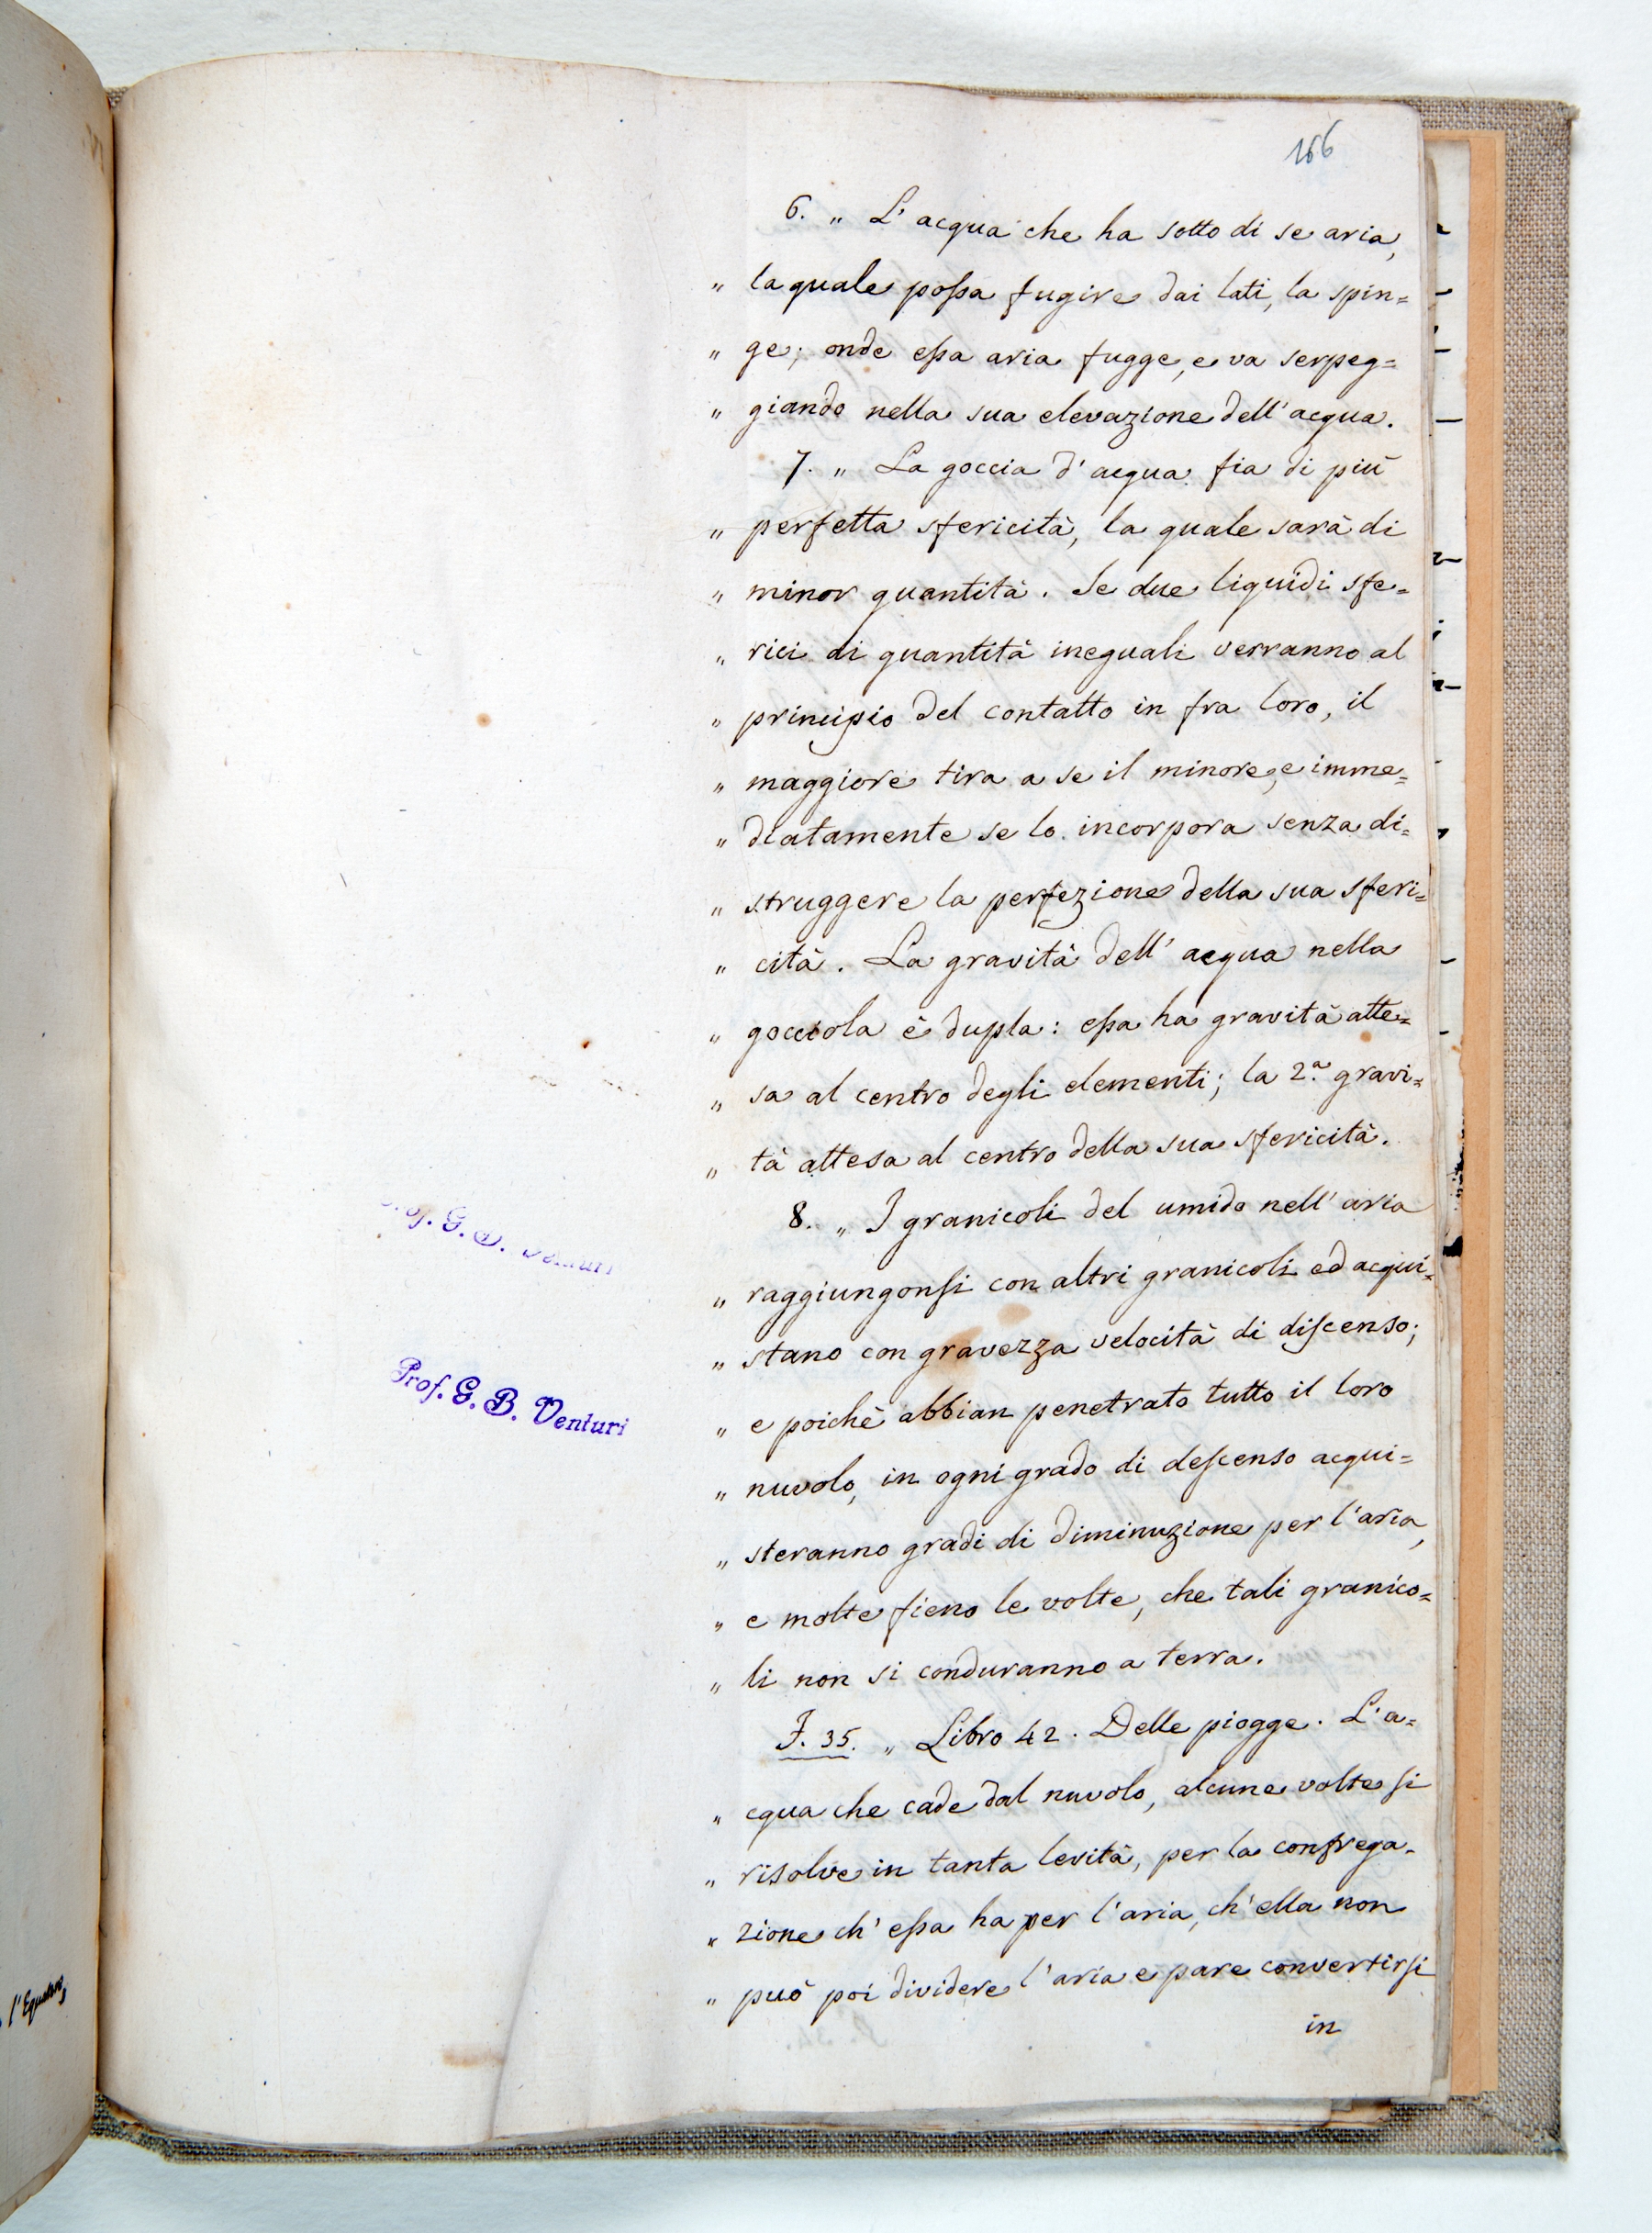 166
6. „ L'acqua che ha sotto di se aria,
„ la quale possa fugire dai lati, la spin=
„ ge; onde essa aria fugge, e va serpeg=
„ giando nella sua elevazione dell'acqua.
7. „ La goccia d'acqua fia di più
„ perfetta sfericità, la quale sarà di
„ minor quantità. Se due liquidi sfe=
„ rici di quantità ineguali verranno al
„ principio del contatto in fra loro, il
„ maggiore tira a se il minore, e imme=
„ diatamente se lo incorpora senza di=
„ struggere la perfezione della sua sferi=
„ cità. La gravità dell'acqua nella
„ gocciola è dupla: essa ha gravità atte=
„ sa al centro degli elementi; la 2.a gravi=
„ tà attesa al centro della sua sfericità.
8. „ I granicoli del umido nell'aria
„ raggiungonsi con altri granicoli ed acqui=
„ stano con gravezza velocità di discenso;
„ e poichè abbian penetrato tutto il loro
„ nuvolo, in ogni grado di descenso acqui=
„ steranno gradi di diminuzione per l'aria,
„ e molte fieno le volte, che tali granico=
„ li non si conduranno a terra.
F. 35. „ Libro 42. Delle piogge. L'a=
„ cqua che cade dal nuvolo, alcune volte si
„ risolve in tanta levità, per la confrega=
„ zione ch'essa ha per l'aria, ch'ella non
„ può poi dividere l'aria e pare convertirsi
in
Prof. G. B. Venturi
Prof. G. B. Venturi